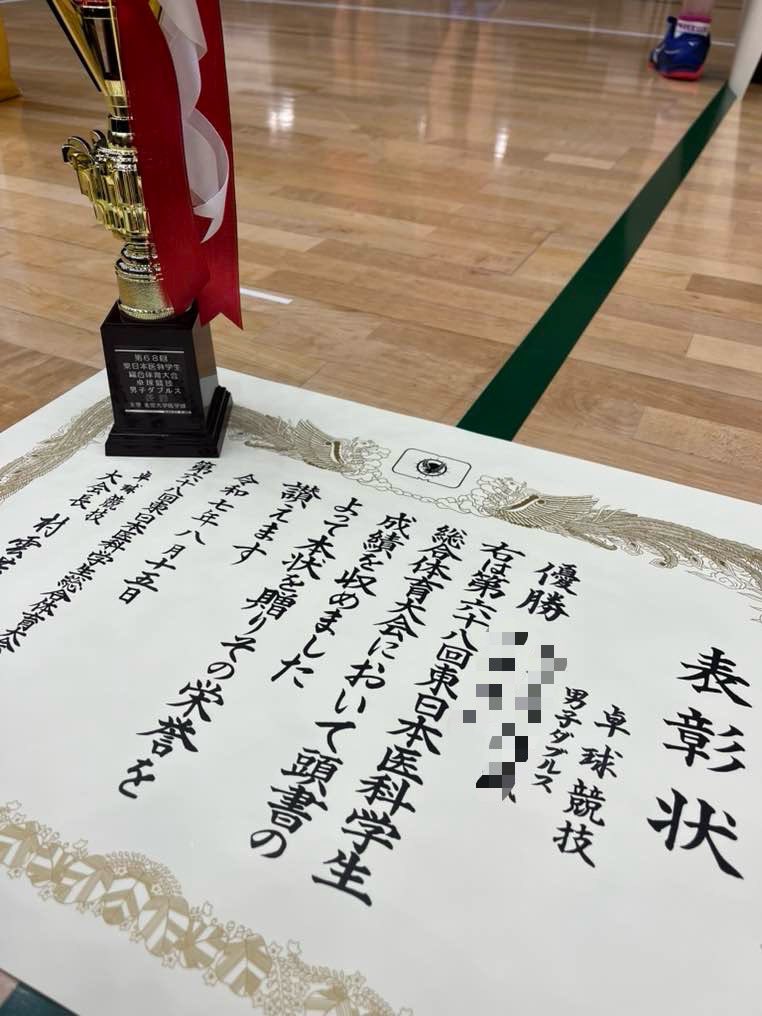 表彰状
卓球競技
男子ダブルス
優勝
右は第六十八回東日本医科学生
総合体育大会において頭書の
成績を収めました
よって本状を贈りその栄誉を
讃えます
令和七年八月十五日
第六十八回東日本医科学生総合体育大会
卓球競技
大会長 村雲
第68回
東日本医科学生
総合体育大会
卓球競技
男子ダブルス